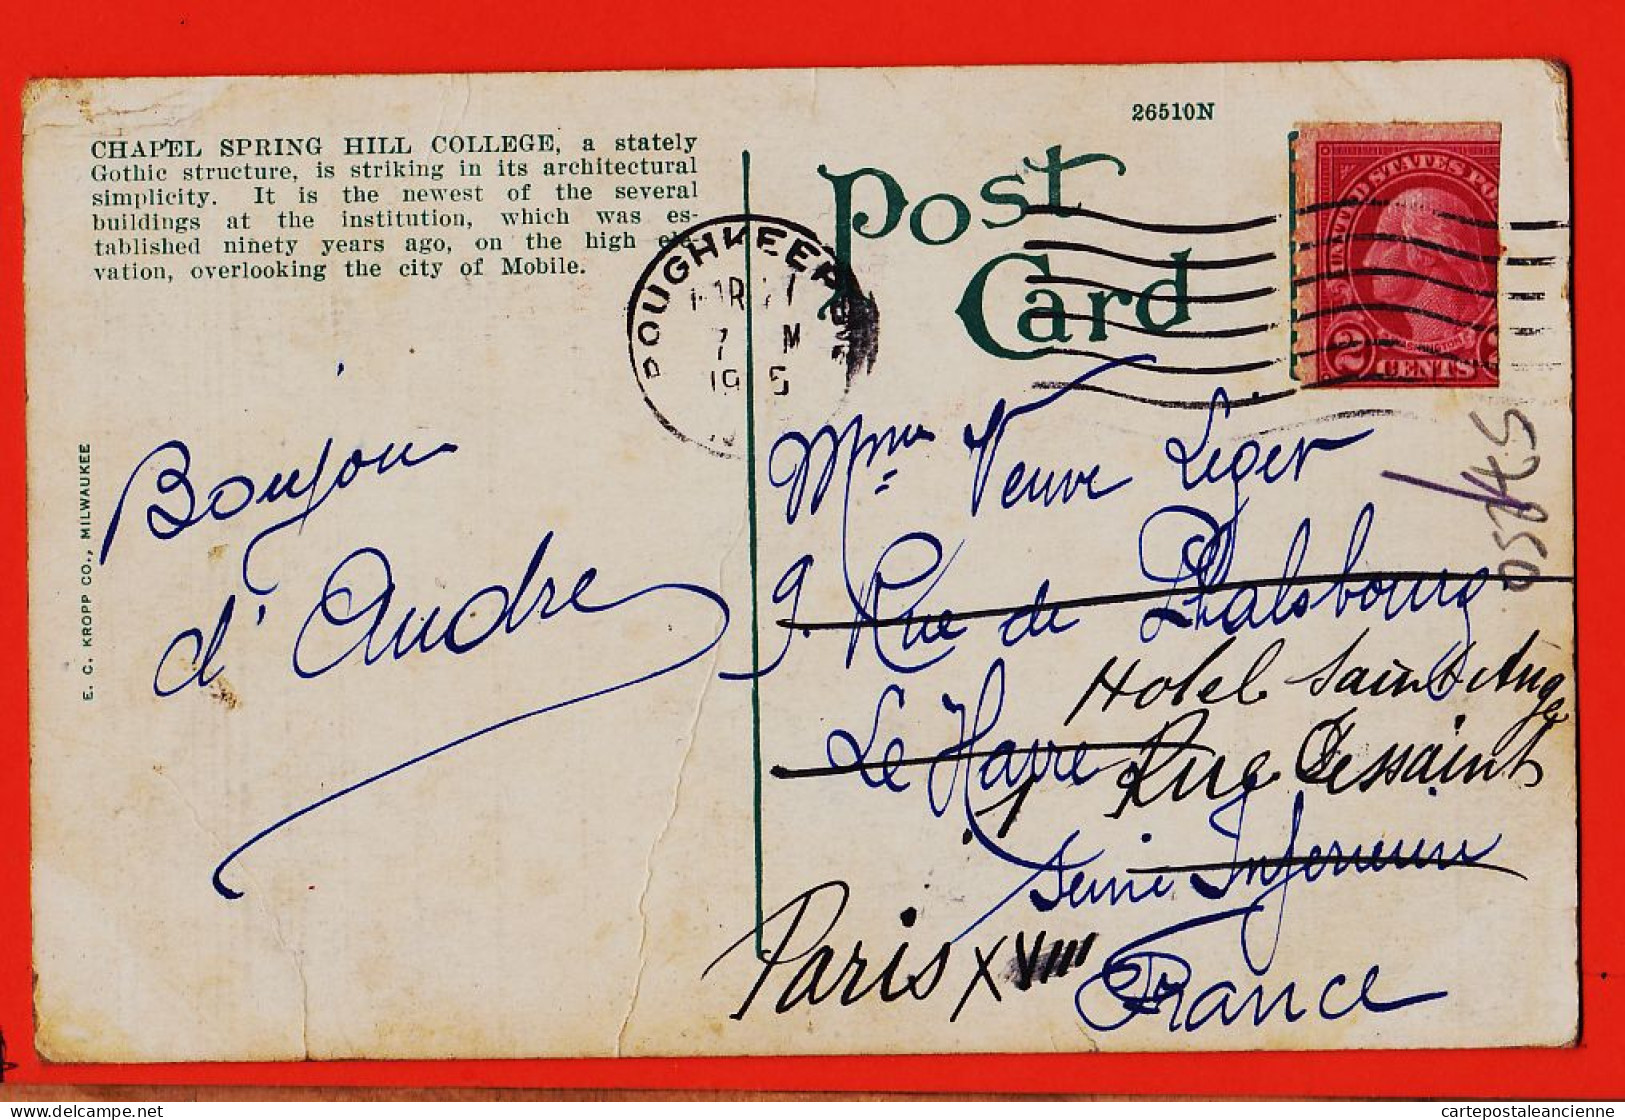 26510N
CHAPEL SPRING HILL COLLEGE, a stately
Gothic structure, is striking in its architectural
simplicity. It is the newest of the several
buildings at the institution, which was es-
tablished ninety years ago, on the high ele-
vation, overlooking the city of Mobile.
Post
Card
UNITED STATES POS
2 CENTS
POUGHKEEP
7 M
E. C. KROPP CO., MILWAUKEE
Bonjour
d'Andre
Mme Veuve Leger
9. Rue de Phalsbourg
Le Havre
Seine Inferieure
France
Hotel Saint Ange
Rue
Paris XVIII
cartepostaleancienne